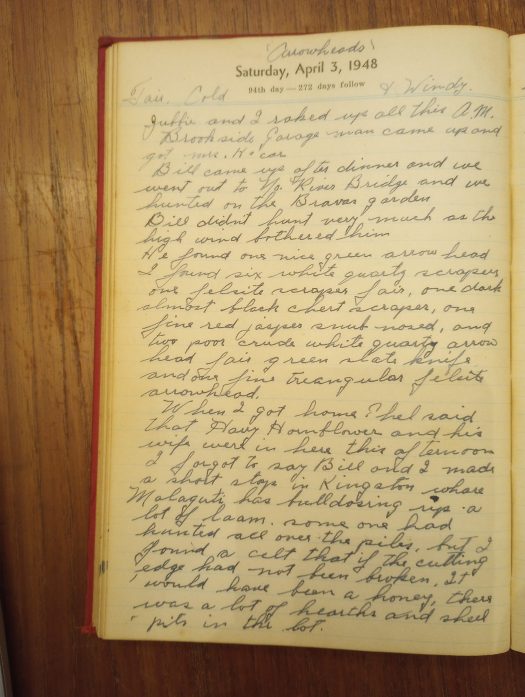 "Arrowheads"
Saturday, April 3, 1948
94th day—272 days follow
Fair, Cold & Windy.
and I raked up all this A.M.
Brookside Garage man came up and
got Mrs. H's car
Bill came up after dinner and we
went out to No. River Bridge and we
hunted on the Bravar garden
Bill didnt hunt very much as the
high wind bothered him
He found one nice green arrow head
I found six white quartz scrapers,
one felsite scraper fair, one dark
almost black chert scraper, one
fine red jasper snub nosed, and
two poor crude white quartz arrow
head fair green slate knife
and one fine triangular felsite
arrowhead.
When I got home Thel said
that Havy Hornflower and his
wife were in here this afternoon
I forgot to say Bill and I made
a short stop in Kingston where
Malaguti has bulldosing up a
lot of loam. some one had
hunted all over the piles, but I
found a celt that if the cutting
edge had not been broken. It
would have been a honey, there
was a lot of hearths and shell
pits in the lot.